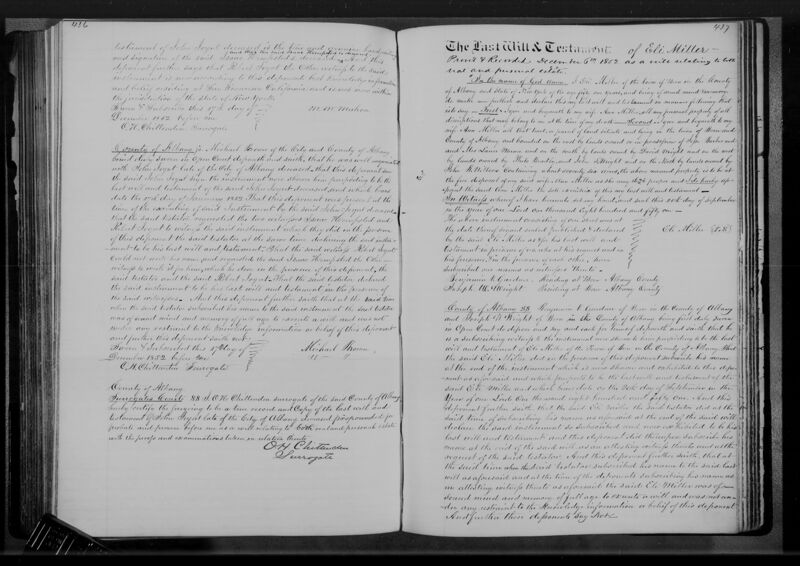 436
testament of John Joyst deceased is the true and genuine hand writing
and signature of the said Isaac Hempsted deceased
instrument
and being residing at San Francisco California and is not now within
the jurisdiction of the State of New York
Sworn & Subscribed this 17th day of
December 1852 before me
O.H. Chittenden Surrogate
County of Albany ss. Michael Brown of the City and County of Albany
being duly sworn in Open Court deposeth and saith, that he was well acquainted
with John Joyst late of the City of Albany deceased, that this deponent
the said John Joyst sign the instrument now shown him purporting to be the
last will and testament of the said John Joyst deceased and which bears
date the day of January 1852 That this deponent was present at the
time of the execution of said instrument by the said John Joyst deceased
that the said testator requested the two witnesses Isaac Hempsted and
Robert Joyst to witness the said instrument which they did in the presence
of this deponent the said testator at the same time declaring the said instru-
ment to be his last will and testament. That the said witness Robert Joyst
Could not write his name and requested the said Isaac Hempsted the other
witness to write it for him which he done in the presence of this deponent, the
said testator and the said Robert Joyst. That the said testator declared
the said instrument to be his last will and testament in the presence of
the said witnesses. And this deponent further saith that at the said time
when the said testator subscribed his name to the said instrument the said testator
was of sound mind and memory of full age to execute a will and was not
under any restraint to the knowledge information or belief of this deponent
and further this deponent saith not
Sworn & Subscribed this 17 day of
December 1852 before me
Michael Brown
O.H. Chittenden Surrogate
County of Albany
Surrogates Court SS I O.H. Chittenden surrogate of the said County of Albany
hereby certify the foregoing to be a true record and Copy of the last will and
testament of John Joyst late of the City of Albany deceased propounded for
probate and proven before me as a will relating to both real and personal estate
with the proofs and examinations taken in relation thereto
O.H. Chittenden
Surrogate
437
The Last Will & Testament of Eli Miller
Proved & Recorded December 6th 1852 as a will relating to both
real and personal estate.
In the name of God Amen. I Eli Miller of the town of Bern in the County
of Albany and State of New York of the age of years, and being of sound mind & memory
do make publish and declare this my last will and testament in manner following that
is to say. First I give and bequeath to my wife Ann Miller all my personal property of all
descriptions that may belong to me at the time of my death. Second I give and bequeath to my
wife Ann Miller all that tract or parcel of land situate and being in the town of Bern and
County of Albany and bounded on the east by lands owned or in possession of
and on the south by lands owned by and on the west
by lands owned by and John Wright and on the North by lands owned by
John Containing about seventy six acres, the above named property is to be at
the free disposal of my said wife Ann Miller as she may see proper and I do hereby ap-
point the said Ann Miller the sole executrix of this my last will and testament
In Witness whereof I have hereunto set my hand and seal this 30th day of September
in the year of our Lord One thousand eight hundred and fifty one.
The above instrument consisting of one sheet was at
the date thereof signed sealed published & declared
by the said Eli Miller as & for his last will and
testament in presence of us who at his request and in
his presence & in the presence of each other, have
subscribed our names as witnesses thereto
Eli Miller (L.S.)
Benjamin F Gardner Residing at Bern Albany County
Joseph W. Wright Residing at Bern Albany County
County of Albany SS Benjamin F Gardner of Bern in the County of Albany
and Joseph W Wright of Bern in the County of Albany being first duly sworn
in Open Court do depose and say and each for himself deposeth and saith that he
is a subscribing witness to the instrument now shown to him purporting to be the last
will and testament of Eli Miller of the town of Bern in the County of Albany that
the said Eli Miller did in the presence of this deponent subscribe his name
at the end of the instrument which is now shown and exhibited to this depo-
nent as aforesaid and which purports to be the last will and testament of the
said Eli Miller and which bears date on the 30th day of September in the
Year of our Lord One thousand eight hundred and fifty One. And this
deponent further saith that the said Eli Miller the said testator did at the
said time of subscribing his name as aforesaid at the end of the said will
declare the said instrument so subscribed and now exhibited to be his
last will and testament and this deponent did thereupon subscribe his
name at the end of the said will as an attesting witness thereto at the
request of the said testator. And this deponent further saith, that at
the said time when the said testator subscribed his name to the said last
will as aforesaid and at the time of the deponents subscribing his name as
an attesting witness thereto as aforesaid the said Eli Miller was of
sound mind and memory of full age to execute a will and was not un-
der any restraint to the knowledge information or belief of this deponent
And further these deponents say Not.